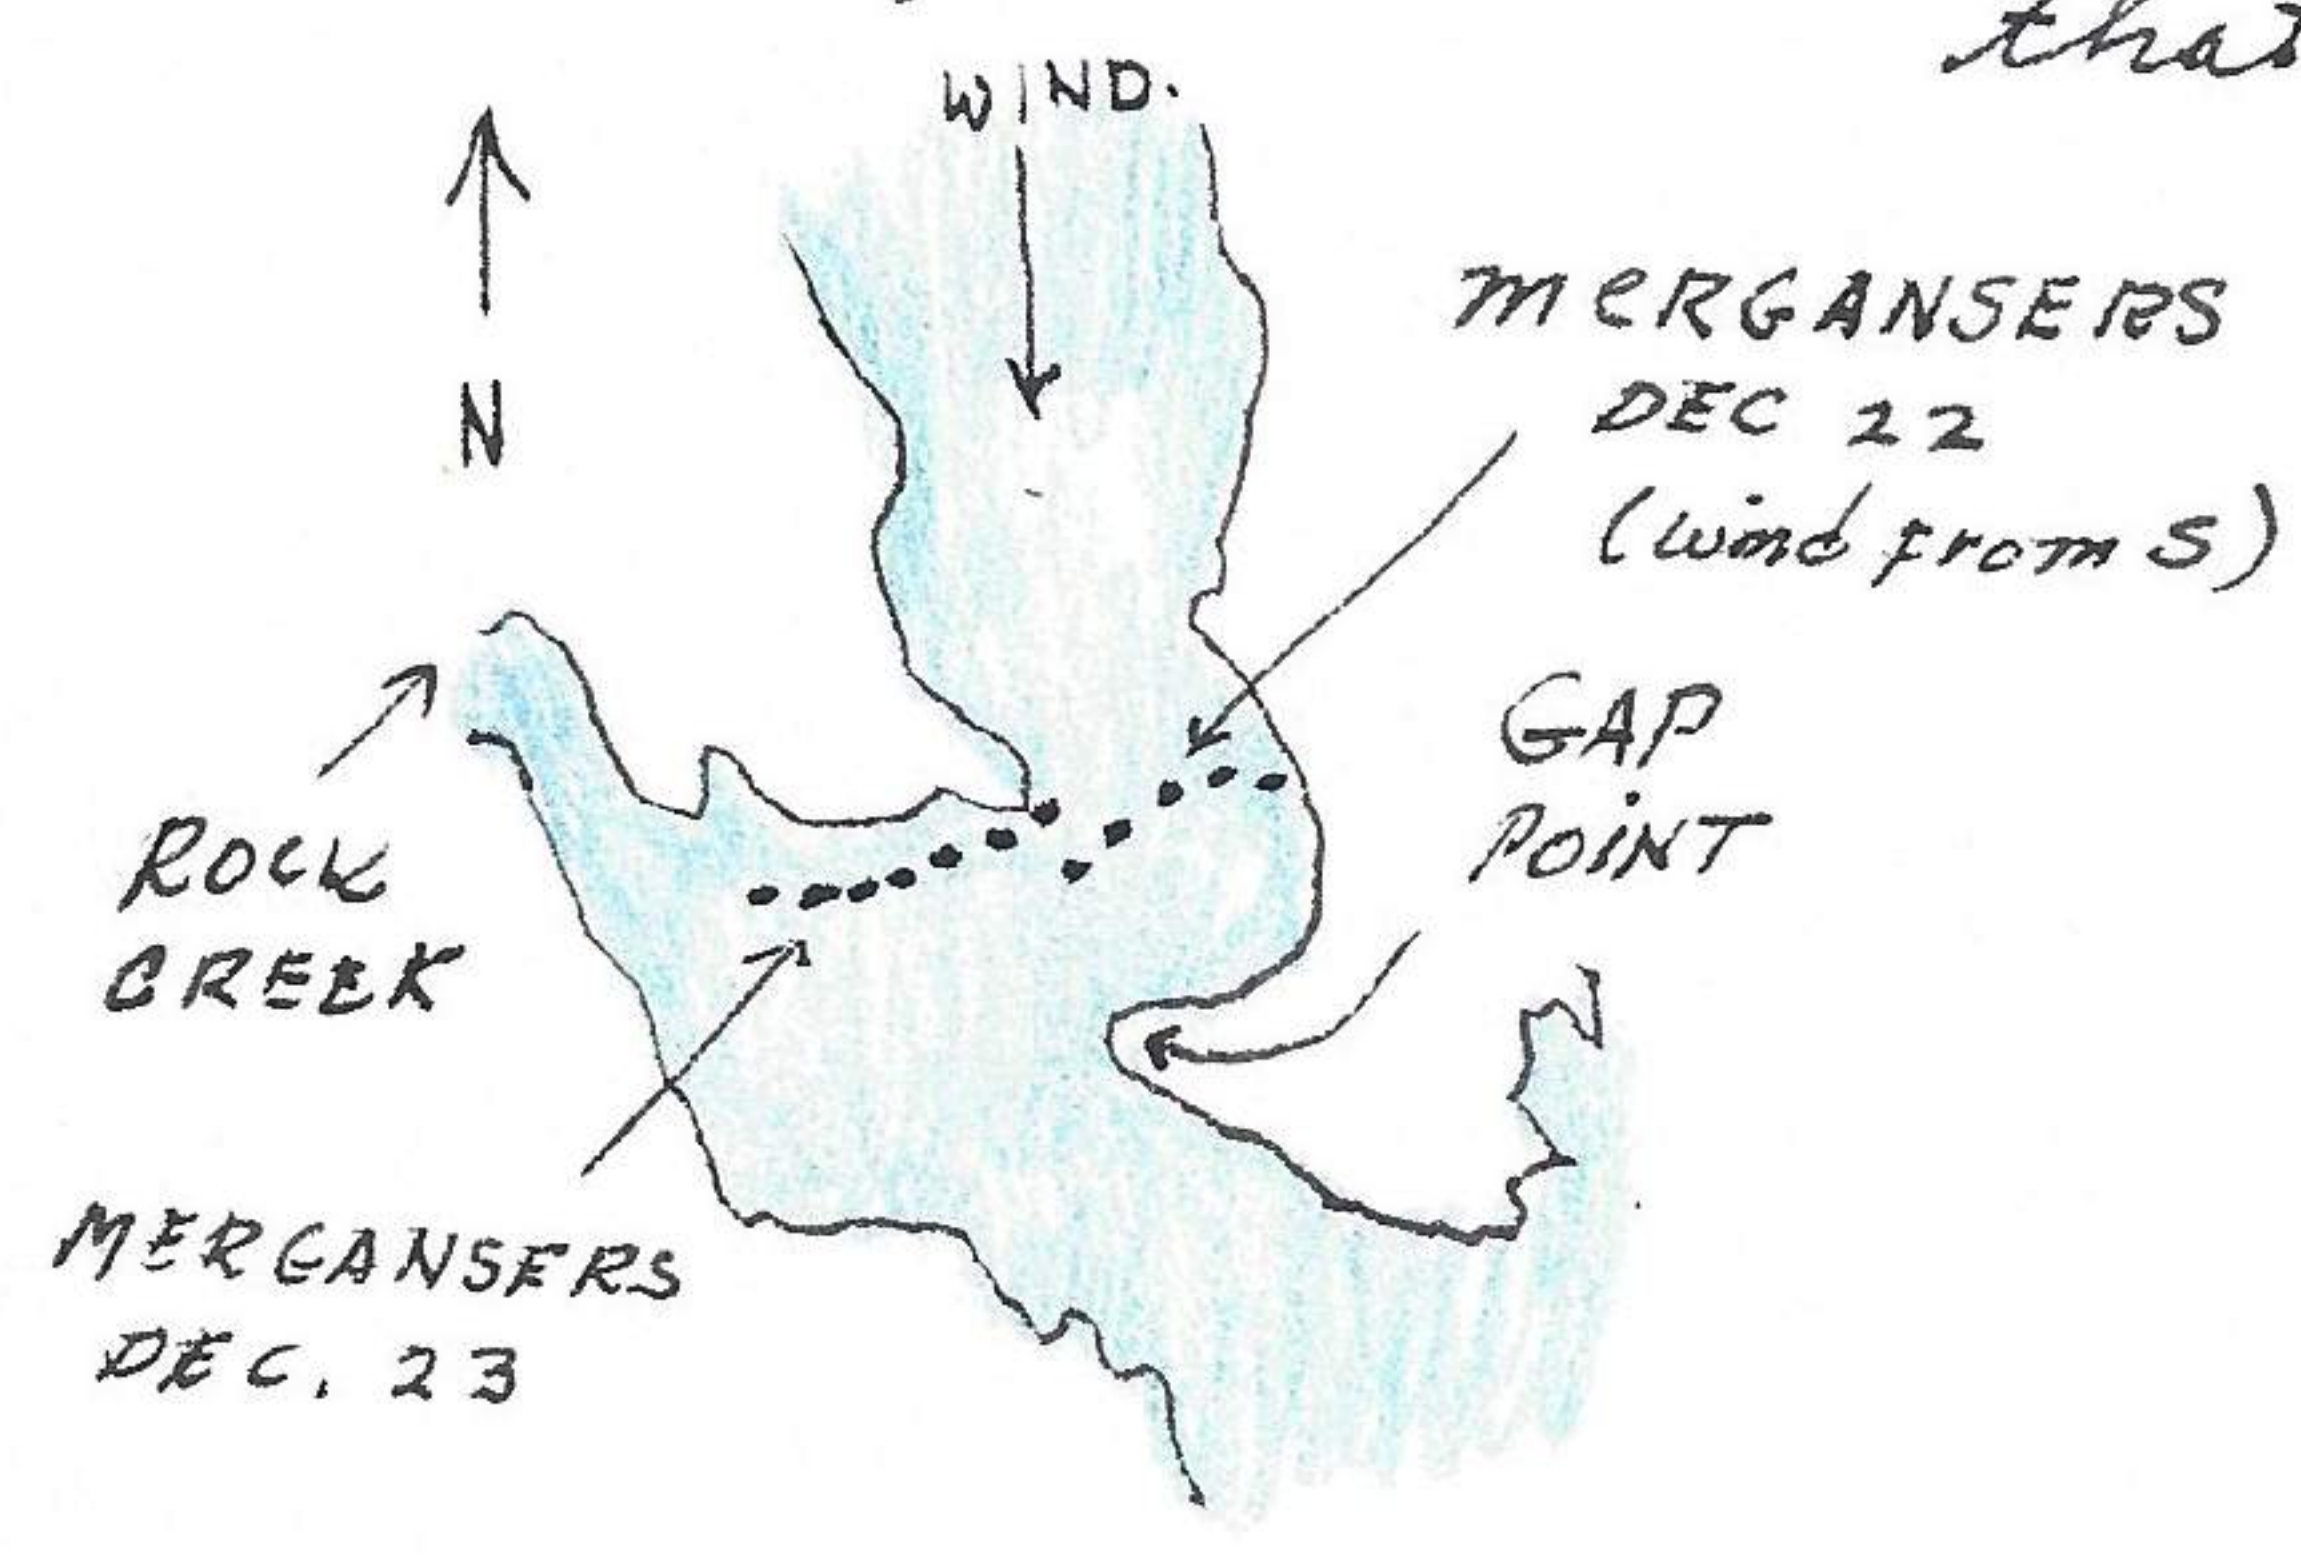 that
WIND.
N
MERGANSERS
DEC 22
(wind from S)
GAP
POINT
ROCK
CREEK
MERGANSERS
DEC. 23